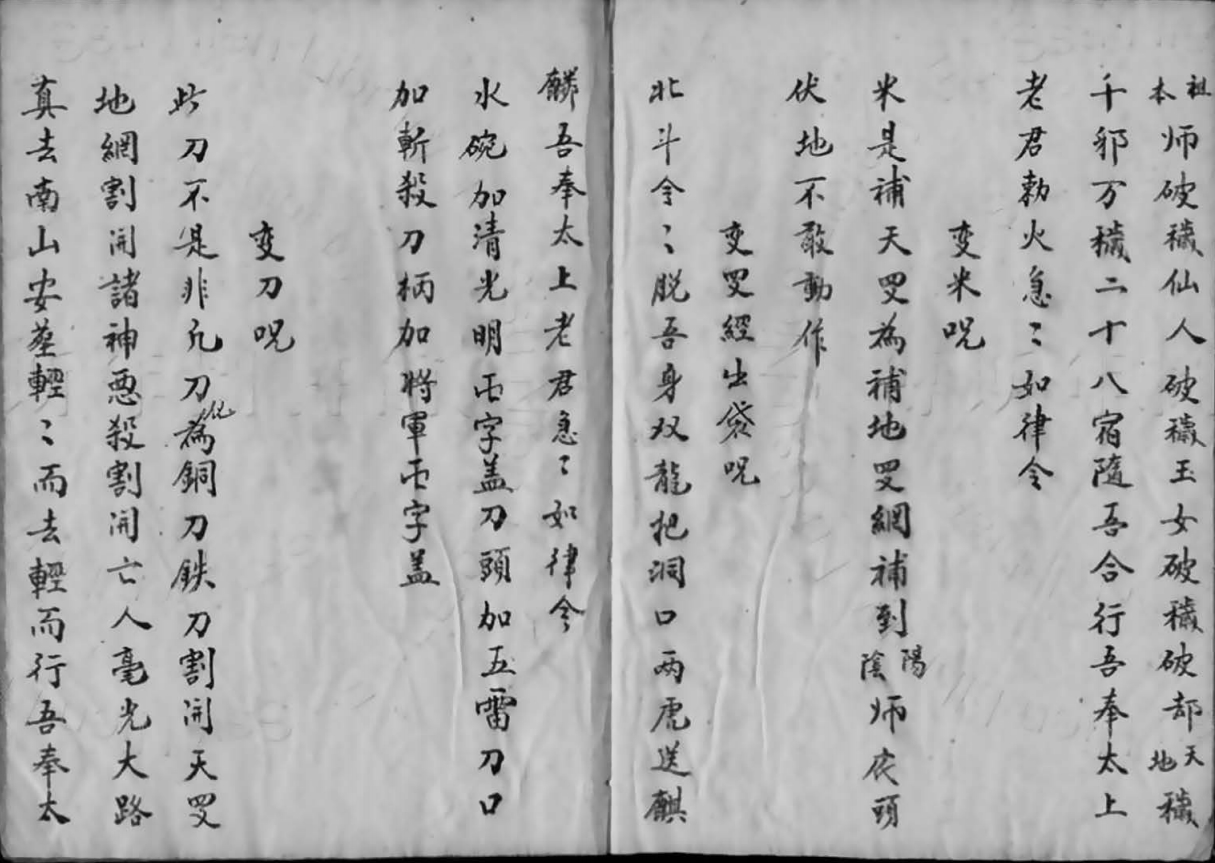 祖本师破穢仙人破穢玉女破穢破却天地穢
千邪万穢二十八宿隨吾合行吾奉太上
老君勅火急〻如律令
变米呪
米是補天罗為補地罗網補到陽陰师床頭
伏地不敢動作
变罗經出袋呪
北斗令〻脱吾身双龍把洞口兩虎送麒
麟吾奉太上老君急〻如律令
水碗加清光明字盖刀頭加五雷刀口
加斬殺刀柄加將軍字盖
变刀呪
此刀不是非凡刀化為銅刀鉄刀割開天罗
地網割開諸神悪殺割開亡人毫光大路
真去南山安塟輕〻而去輕而行吾奉太